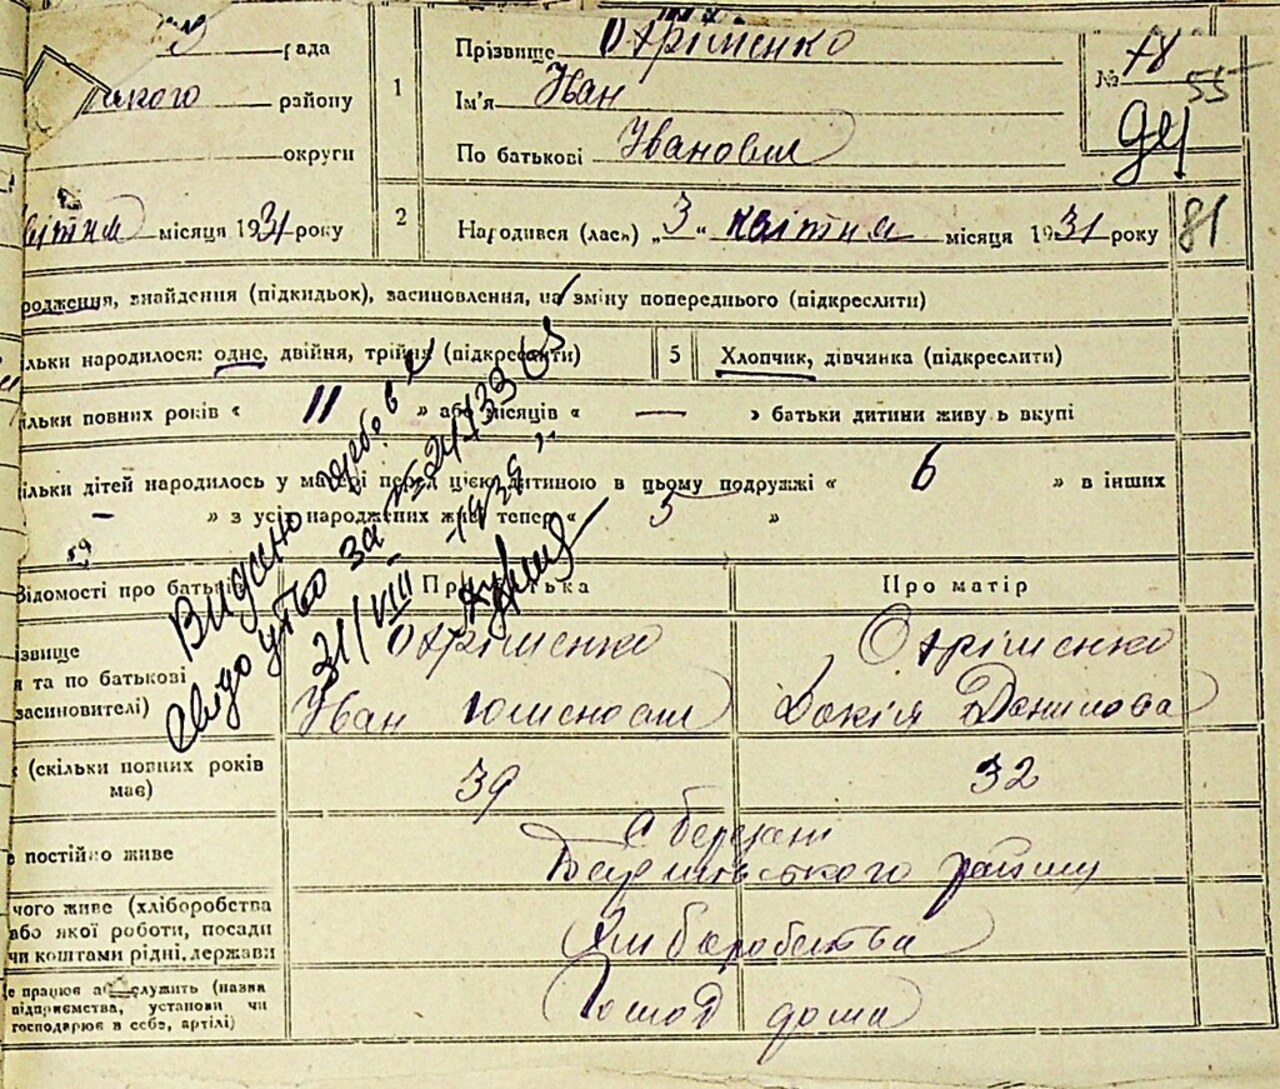 рада
1
Прізвище Охріменко
№ 78 55
ького району
Ім'я Иван
94
округи
По батькові Иванович
квітня місяця 1931 року
2
Народився (лась) „3“ квітня місяця 1931 року
81
родження, знайдення (підкидьок), засиновлення, на зміну попереднього (підкреслити)
ільки народилося: одне, двійня, трійня (підкреслити)
5
Хлопчик, дівчинка (підкреслити)
ільки повних років « 11 » або місяців « — » батьки дитини живуть вкупі
ільки дітей народилось у матері перед цією дитиною в цьому подружжі « 6 » в інших
– » з усіх народжених живі тепер « 5 »
Видано
свідоцтво за № 24133
31/VIII – 1939
Відомості про батьків
Про батька
Про матір
ізвище
я та по батькові
засиновителі)
Охріменко
Иван
Охріменко
Докія Данилова
(скільки повних років
має)
39
32
е постійно живе
с Березані
району
чого живе (хліборобства
або якої роботи, посади
чи коштами рідні, держави
Хліборобства
е працює або служить (назва
підприємства, установи чи
господарює в себе, артілі)
Господ дома